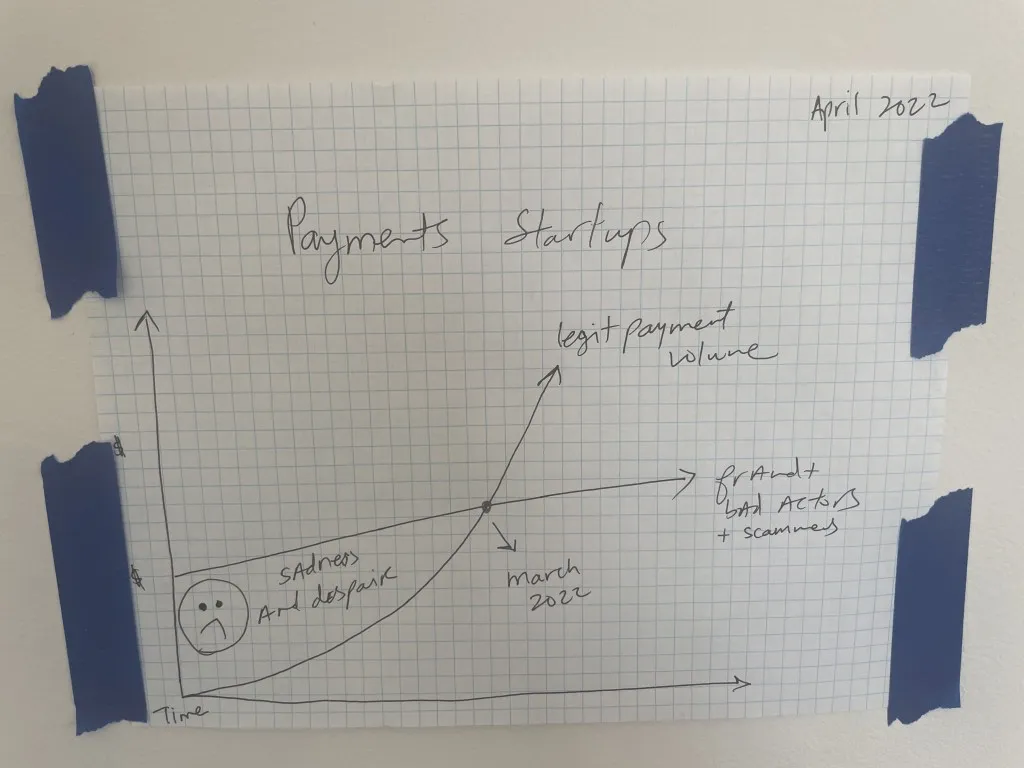 April 2022
Payments Startups
legit payment
volume
$
fraud +
bad actors
+ scammers
$
sadness
and despair
march
2022
Time